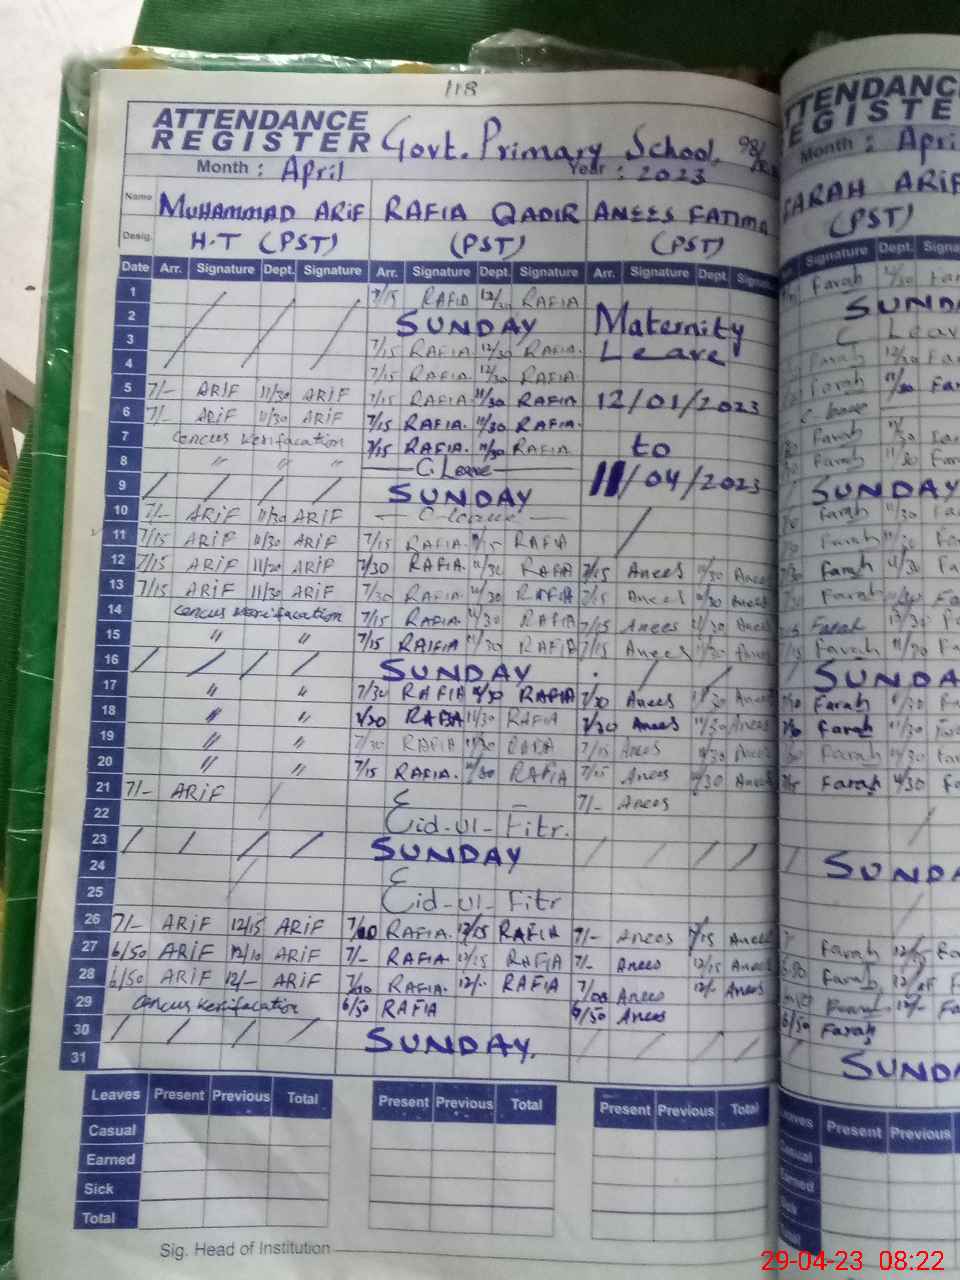 118
ATTENDANCE REGISTER Govt. Primary School 98/
Month : April Year : 2023
Name MUHAMMAD ARIF RAFIA QADIR ANEES FATIMA
Desig. H.T (PST) (PST) (PST)
Date Arr. Signature Dept. Signature Arr. Signature Dept. Signature Arr. Signature Dept. Signature
1 7/15 RAFIA 12/30 RAFIA
2 SUNDAY Maternity
3 7/15 RAFIA 12/30 RAFIA. Leave
4 7/15 RAFIA 12/30 RAFIA.
5 7/- ARIF 11/30 ARIF 7/15 RAFIA 11/30 RAFIA 12/01/2023
6 7/- ARIF 11/30 ARIF 7/15 RAFIA. 11/30 RAFIA.
7 Cencus Verifacation 7/15 RAFIA. 11/30 RAFIA to
8 〃 〃 〃 C Leave
9 SUNDAY 11/04/2023
10 7/- ARIF 11/30 ARIF C-leave
11 7/15 ARIF 11/30 ARIF 7/15 RAFIA. RAFIA
12 7/15 ARIF 11/30 ARIF 7/30 RAFIA. 11/30 RAFIA 7/15 Anees 11/30 Anees
13 7/15 ARIF 11/30 ARIF 7/30 RAFIA 11/30 RAFIA 7/15 Anees 11/30 Anees
14 Cencus Verifacation 7/15 RAFIA 11/30 RAFIA 7/15 Anees 11/30 Anees
15 〃 〃 7/15 RAIFIA 11/30 RAFIA 7/15 Anees 11/30 Anees
16 SUNDAY
17 〃 〃 7/30 RAFIA 11/30 RAFIA 7/30 Anees 11/30 Anees
18 〃 〃 7/30 RAFIA 11/30 RAFIA 7/30 Anees 11/30 Anees
19 〃 〃 7/30 RAFIA 11/30 RAFIA 7/15 Anees 11/30 Anees
20 〃 〃 7/15 RAFIA. 11/30 RAFIA 7/15 Anees 11/30 Anees
21 7/- ARIF 7/- Anees
22 Eid-ul-Fitr.
23 SUNDAY
24
25 Eid-ul-Fitr
26 7/- ARIF 12/15 ARIF RAFIA. 12/15 RAFIA 7/- Anees 12/15 Anees
27 6/50 ARIF 12/10 ARIF 7/- RAFIA 12/15 RAFIA 7/- Anees 12/15 Anees
28 6/50 ARIF 12/- ARIF RAFIA. 12/- RAFIA 7/00 Anees 12/- Anees
29 Cencus Verifacation 6/50 RAFIA 6/50 Anees
30 SUNDAY.
31
Leaves Present Previous Total Present Previous Total Present Previous Total
Casual
Earned
Sick
Total
Sig. Head of Institution
TTENDANC
EGISTE
Month : Apri
FARAH ARIF
(PST)
Signature Dept. Signa
Farah 12/30 Far
SUND
C Leav
Farah 12/30 Fa
Farah 11/30 Far
C leave
Farah 11/30 Fa
Farah 11/30 Fa
SUNDAY
Farah 11/30 Fa
Farah Fa
Farah 11/30 Fa
Farah 11/30 Fa
Farah 11/30 Fa
Farah 11/30 Fa
SUNDA
Farah 11/30 Fa
Farah 11/30 Far
Farah 11/30 Far
Farah 11/30 Fa
SUNDA
Farah 12/15 Fa
Farah 12/15 F
Farah 12/- Fa
6/50 Farah
SUNDA
Leaves Present Previous
Casual
Earned
Sick
Total
29-04-23 08:22